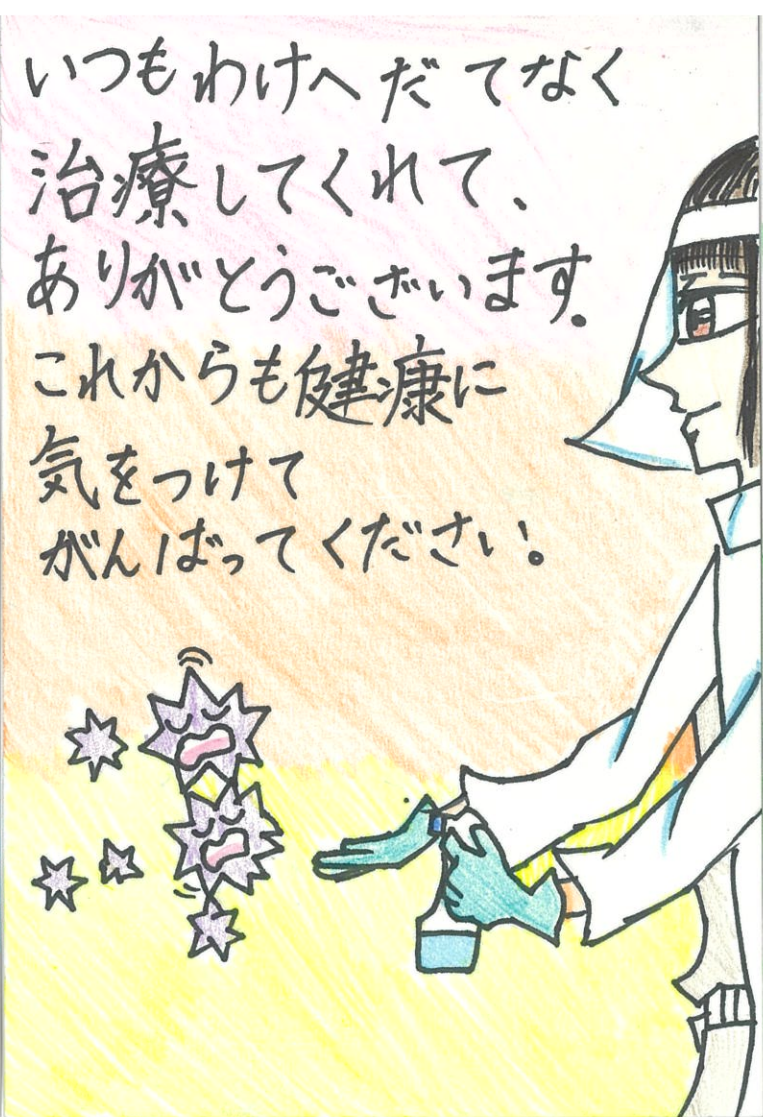 いつもわけへだてなく
治療してくれて、
ありがとうございます。
これからも健康に
気をつけて
がんばってください。